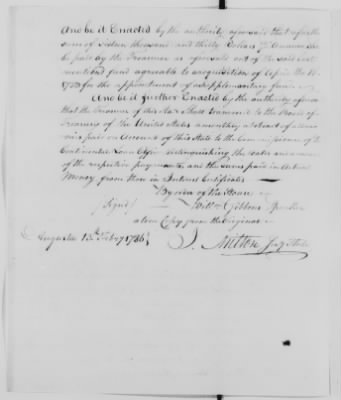 And be it Enacted by the authority aforesaid that a further
sum of sixteen thousand and thirty Dollars Pr Annum
be paid by the Treasurer as aforesaid out of the said
fund agreeable to a requisition of April the
1783 for the appointment of a supplimentary fund
And be it further Enacted by the authority
that the Treasurer of this State shall transmit to the Board of
Treasurers of the United States a monthly abstract of
paid on Account of this State to the Commissioner of the
Continental Loan Office distinguishing the dates and
of the respective payments, and the sums paid in Actual
Money from those in Indent Certificates
By order of the House
(Signd) Willm Gibbons Speaker
a true Copy from the Original
Augusta 13th Feby 1786
J. Milton Secy State